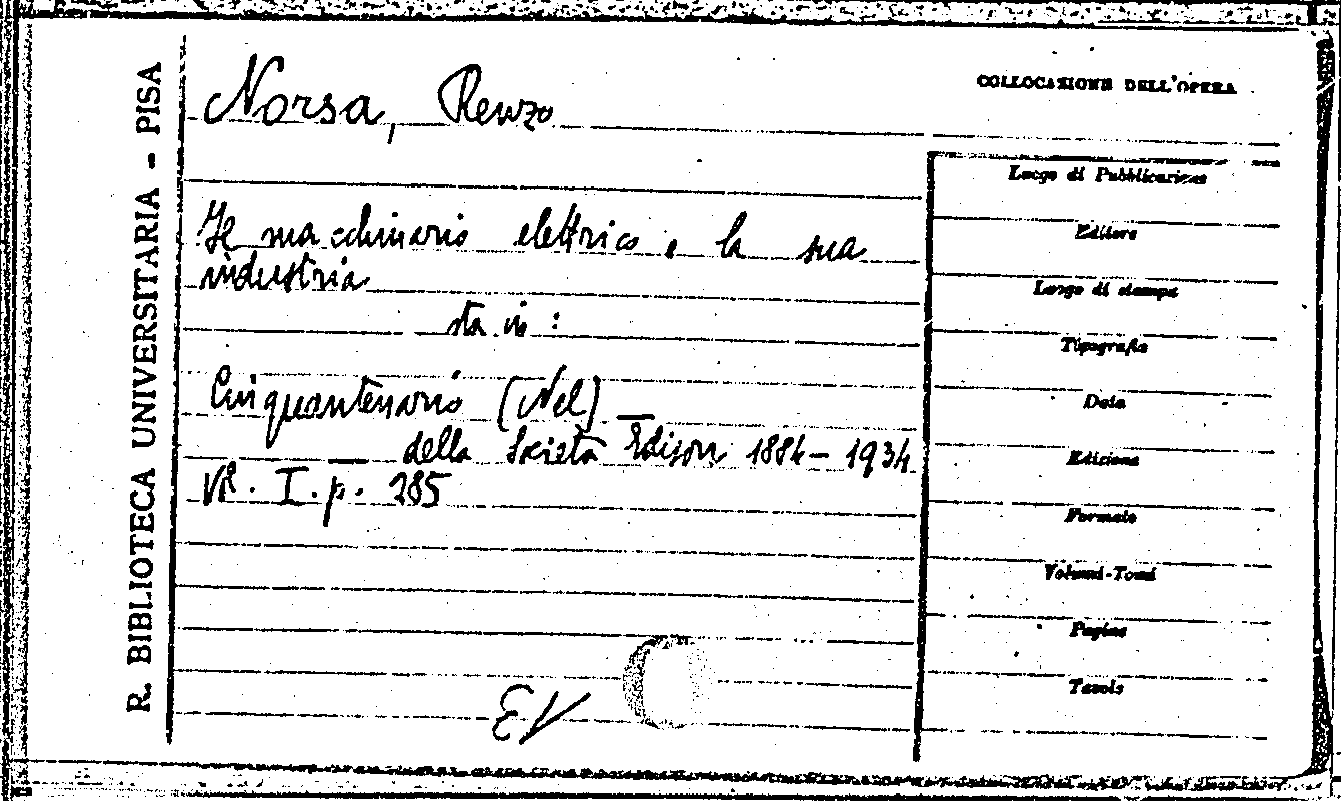 R. BIBLIOTECA UNIVERSITARIA - PISA
Norsa, Renzo
Il macchinario elettrico e la sua
industria
sta in :
Cinquantenario (Nel) —
— della Società Edison 1884 - 1934
I. p. 285
EV
COLLOCAZIONE DELL'OPERA
Luogo di Pubblicazione
Editore
Luogo di stampa
Tipografia
Data
Edizione
Formato
Volumi-Tomi
Pagine
Tavole